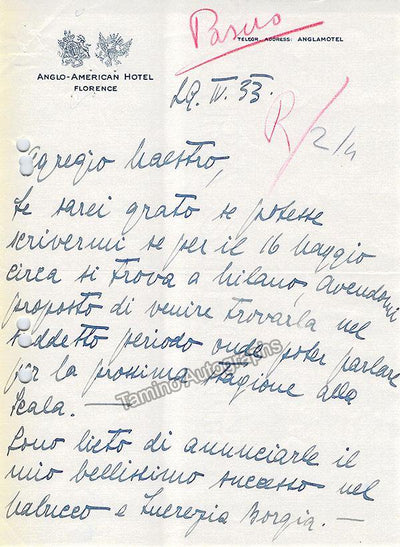 Pasero
TELEGR. ADDRESS: ANGLAMOTEL
ANGLO-AMERICAN HOTEL
FLORENCE
29. IV. 33.
R/
2/4
Egregio Maestro,
Le sarei grato se potesse
scrivermi se per il 16 Maggio
circa si trova a Milano, avendomi
proposto di venire trovarla nel
suddetto periodo onde poter parlare
per la prossima stagione alla
Scala. —
Tamino Autographs
Sono lieto di annunciarle il
mio bellissimo successo nel
Nabucco e Lucrezia Borgia. —